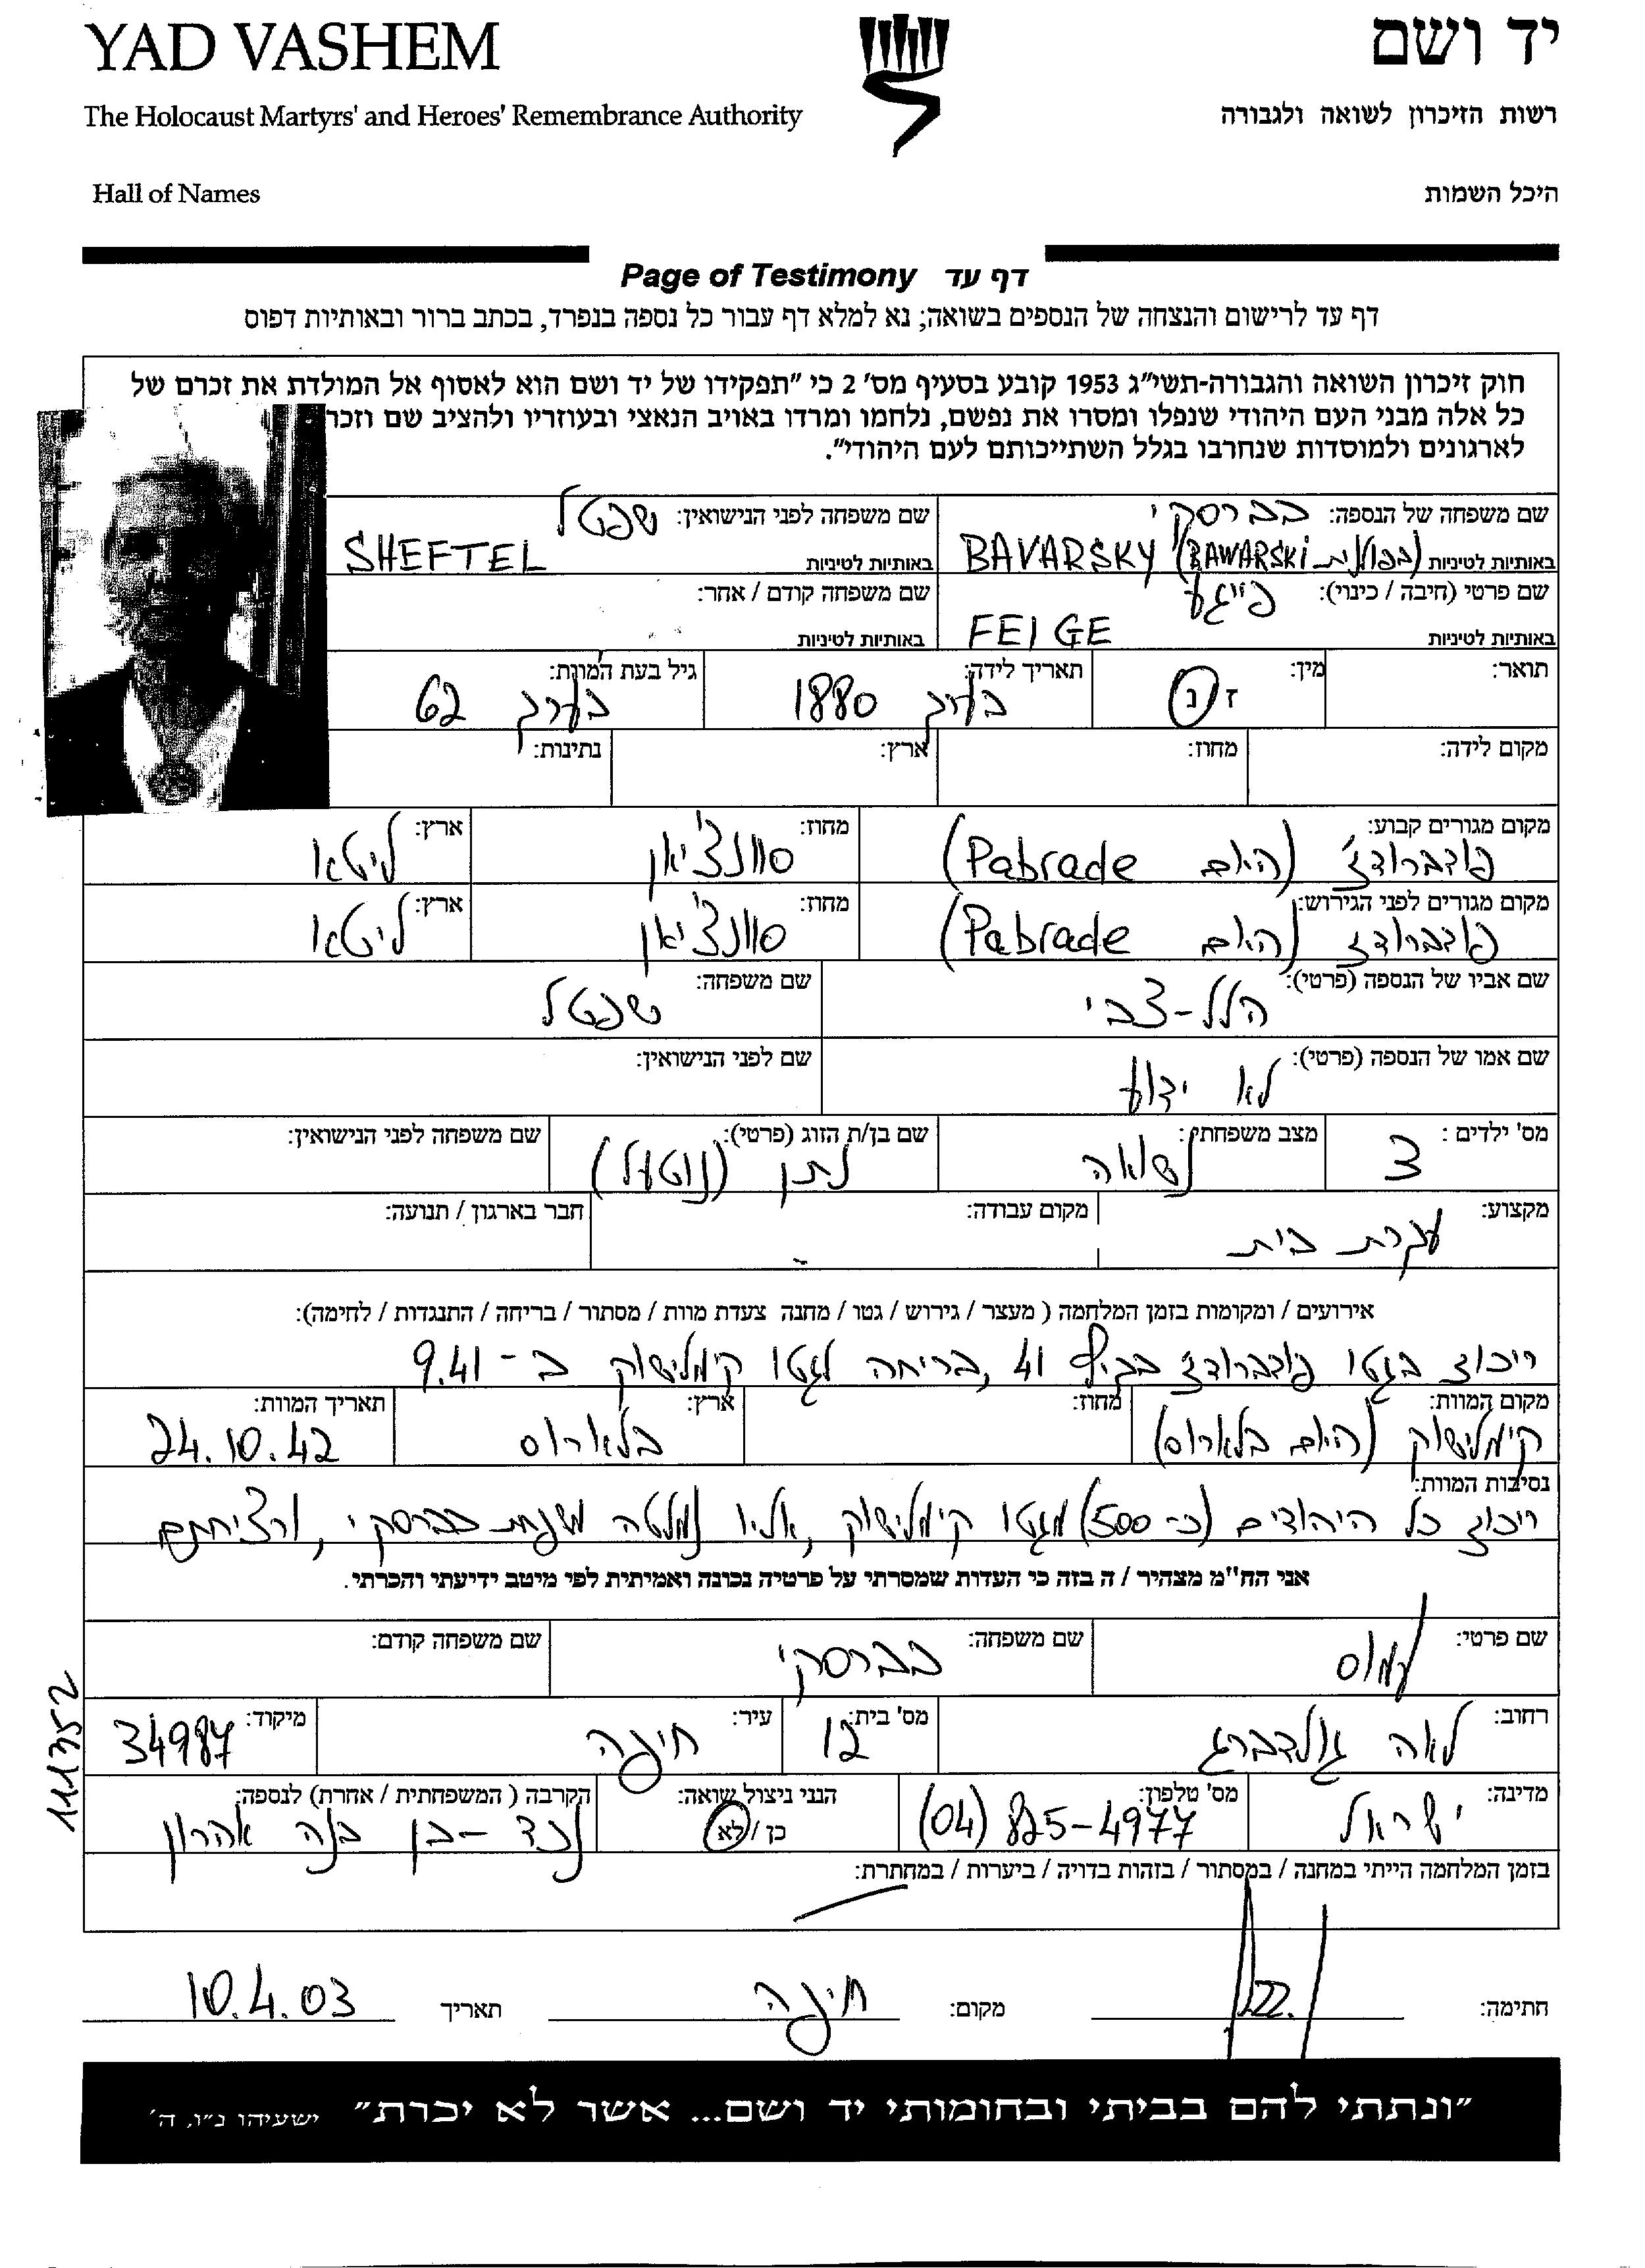 YAD VASHEM
יד ושם
The Holocaust Martyrs' and Heroes' Remembrance Authority
רשות הזיכרון לשואה ולגבורה
Hall of Names
היכל השמות
Page of Testimony דף עד
דף עד לרישום והנצחה של הנספים בשואה; נא למלא דף עבור כל נספה בנפרד, בכתב ברור ובאותיות דפוס
חוק זיכרון השואה והגבורה-תשי"ג 1953 קובע בסעיף מס' 2 כי "תפקידו של יד ושם הוא לאסוף אל המולדת את זכרם של
כל אלה מבני העם היהודי שנפלו ומסרו את נפשם, נלחמו ומרדו באויב הנאצי ובעוזריו ולהציב שם וזכר
לארגונים ולמוסדות שנחרבו בגלל השתייכותם לעם היהודי".
שם משפחה של הנספה: בברסקי שם משפחה לפני הנישואין: שפטל
באותיות לטיניות BAVARSKY (BAWARSKI בפולנית) באותיות לטיניות SHEFTEL
שם פרטי (חיבה / כינוי): פייגע שם משפחה קודם / אחר:
באותיות לטיניות FEIGE באותיות לטיניות
תואר: מין: ז נ תאריך לידה: בערך 1880 גיל בעת המוות: בערך 62
מקום לידה: מחוז: ארץ: נתינות:
מקום מגורים קבוע: פודברודז' (היום Pabrade) מחוז: סוונצ'יאן ארץ: ליטא
מקום מגורים לפני הגירוש: פודברודז' (היום Pabrade) מחוז: סוונצ'יאן ארץ: ליטא
שם אביו של הנספה (פרטי): הלל-צבי שם משפחה: שפטל
שם אמו של הנספה (פרטי): לא ידוע שם לפני הנישואין:
מס' ילדים: 3 מצב משפחתי: נשואה שם בן/ת הזוג (פרטי): נתן (נוטעל) שם משפחה לפני הנישואין:
מקצוע: עקרת בית מקום עבודה: - חבר בארגון / תנועה:
אירועים / ומקומות בזמן המלחמה ( מעצר / גירוש / גטו / מחנה צעדת מוות / מסתור / בריחה / התנגדות / לחימה):
ריכוז בגטו פודברודז' בקיץ 41, בריחה לגטו קימלישוק ב- 9.41
מקום המוות: קימלישוק (היום בלארוס) מחוז: ארץ: בלארוס תאריך המוות: 24.10.42
נסיבות המוות:
ריכוז כל היהודים (כ-500) מגטו קימלישוק, אליו נמלטה משפחת בברסקי, ורציחתם
אני הח"מ מצהיר / ה בזה כי העדות שמסרתי על פרטיה נכונה ואמיתית לפי מיטב ידיעתי והכרתי.
שם פרטי: עמוס שם משפחה: בברסקי שם משפחה קודם:
רחוב: לאה גולדברג מס' בית: 12 עיר: חיפה מיקוד: 34987
מדינה: ישראל מס' טלפון: (04) 825-4977 הנני ניצול שואה: כן / לא הקרבה ( המשפחתית / אחרת) לנספה: נכד - בן בנה אהרון
בזמן המלחמה הייתי במחנה / במסתור / בזהות בדויה / ביערות / במחתרת:
חתימה: מקום: חיפה תאריך 10.4.03
"ונתתי להם בביתי ובחומותי יד ושם... אשר לא יכרת" ישעיהו נ"ו, ה'
111352